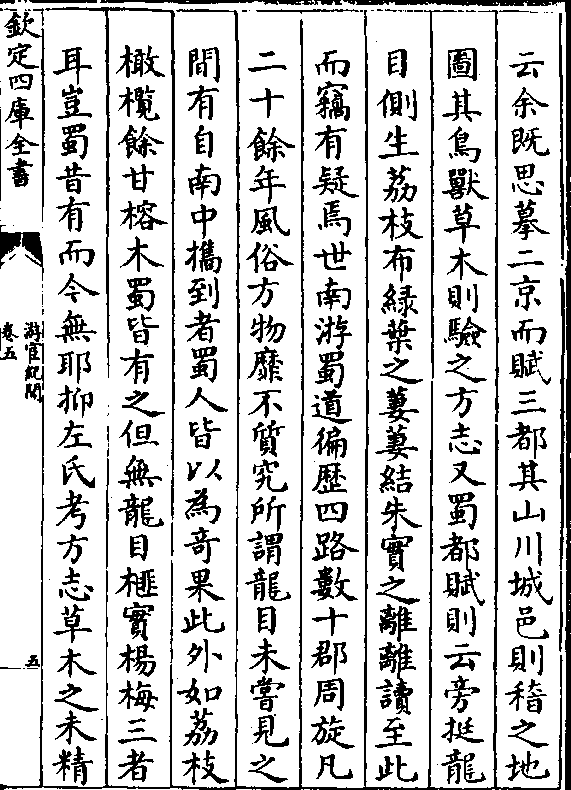 云余既思摹二京而賦三都其山川城邑則稽之地
圖其鳥獸草木則驗之方志又蜀都賦則云旁挺龍
目側生荔枝布綠葉之萋萋結朱實之離離讀至此
而竊有疑焉世南游蜀道徧歷四路數十郡周旋凡
二十餘年風俗方物靡不質究所謂龍目未嘗見之
間有自南中攜到者蜀人皆以為竒果此外如荔枝
橄欖餘甘榕木蜀皆有之但無龍目榧實楊梅三者
耳豈蜀昔有而今無耶抑左氏考方志草木之未精
欽定四庫全書
游宦紀聞
卷五
五